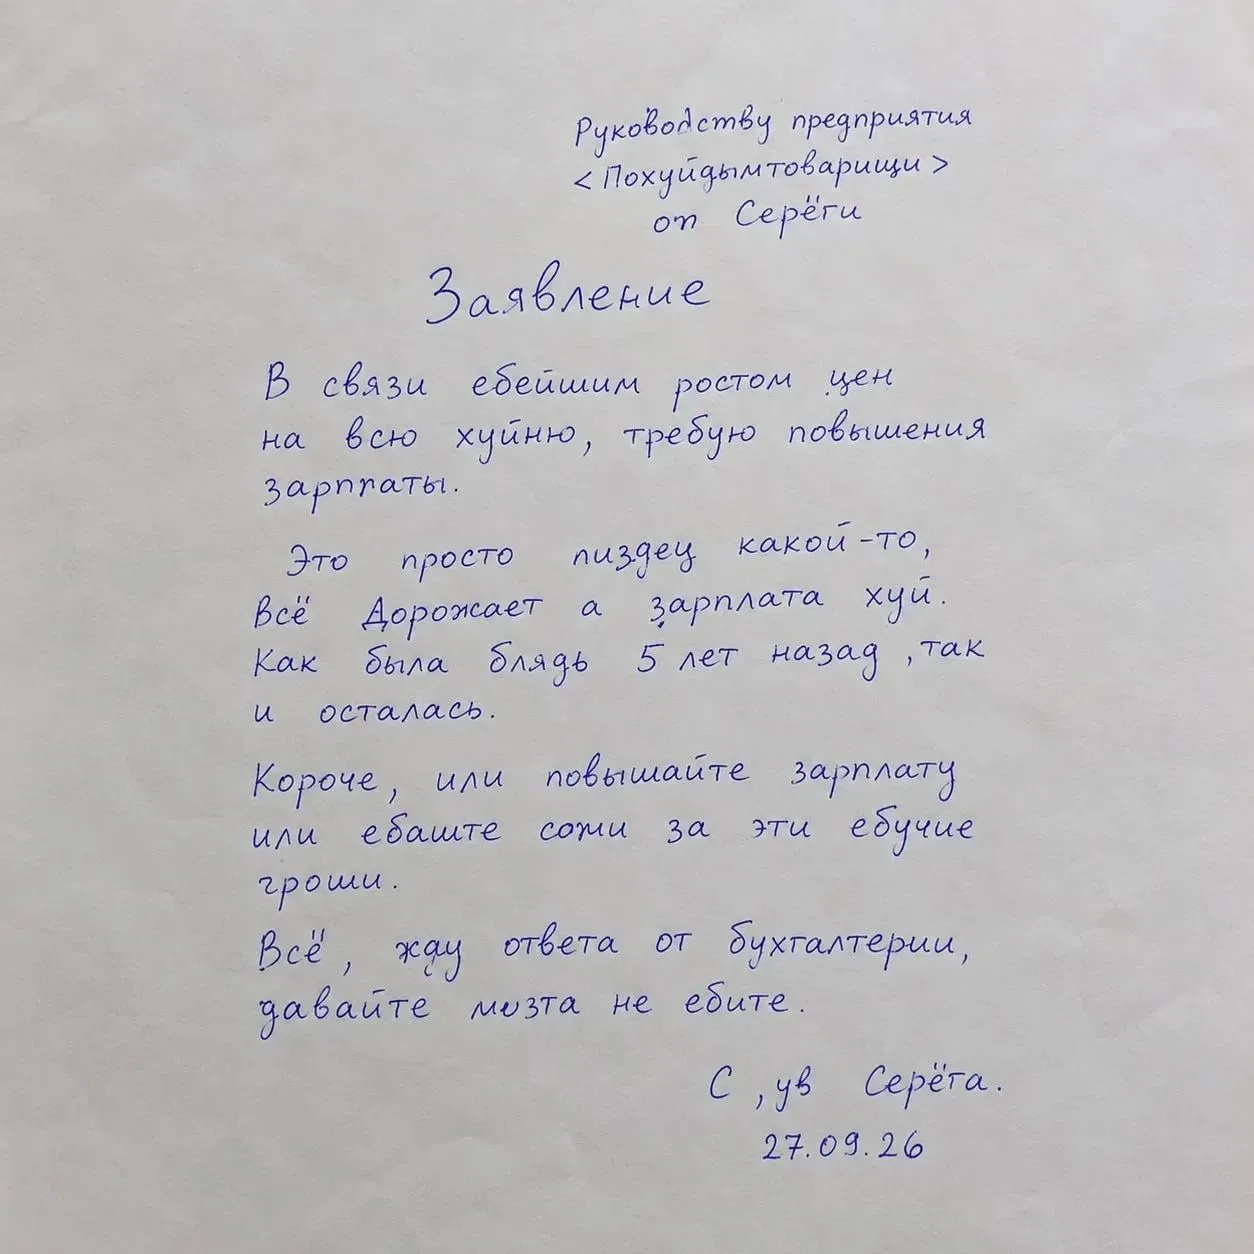 Руководству предприятия
<Похуйдымтоварищи>
от Серёги
Заявление
В связи ебейшим ростом цен
на всю хуйню, требую повышения
зарплаты.
Это просто пиздец какой-то,
Всё Дорожает а зарплата хуй.
Как была блядь 5 лет назад, так
и осталась.
Короче, или повышайте зарплату
или ебаште сами за эти ебучие
гроши.
Всё, жду ответа от бухгалтерии,
давайте мозга не ебите.
С, ув Серёга.
27.09.26